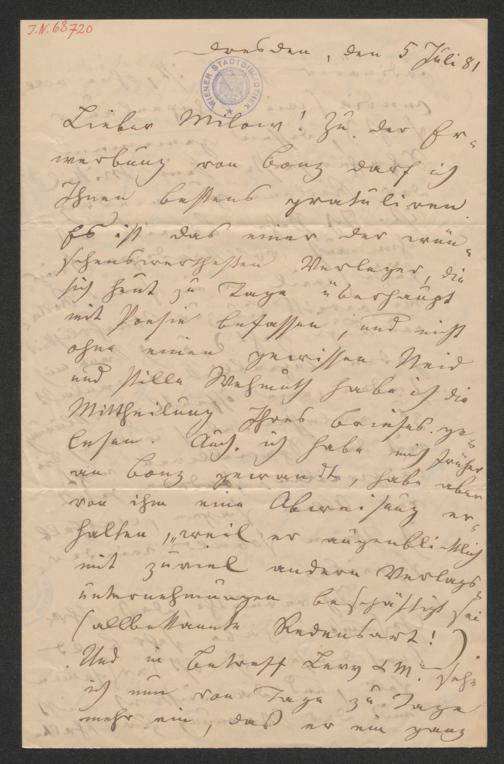 J.N. 68720
Dresden, den 5 Juli 81
WIENER STADTBIBLIOTHEK
Lieber Milow! Zu der Er-
werbung von Bonz darf ich
Ihnen bestens gratuliren.
Es ist das einer der wün-
schenswerthesten Verleger, die
sich heut zu Tage überhaupt
mit Poesie befassen, und nicht
ohne einen gewissen Neid
und stille Wehmuth habe ich die
Mittheilung Ihres Briefes ge-
lesen. Auch ich habe mich früher
an Bonz gewandt, habe aber
von ihm eine Abweisung er-
halten, „weil er augenblicklich
mit zuviel andern Verlags-
unternehmungen beschäftigt sei
(allbekannte Redensart!)
Und in Betreff Levy & M. sehe
ich nun von Tage zu Tage
mehr ein, daß er ein ganz